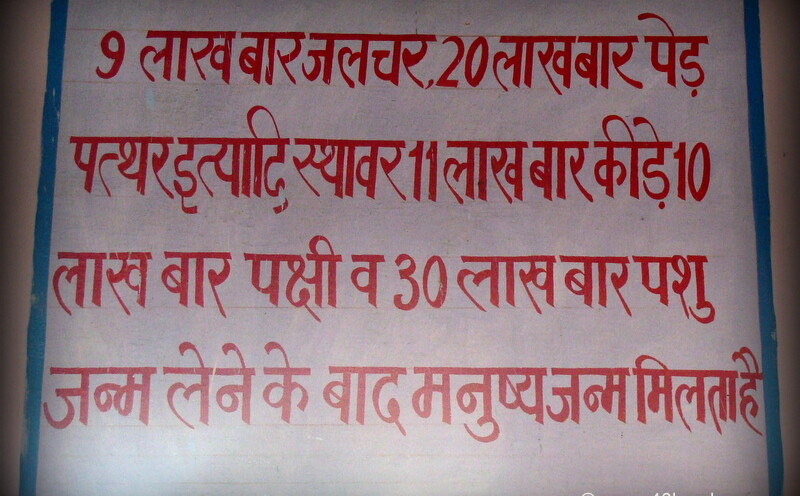 9 लाख बार जलचर, 20 लाख बार पेड़
पत्थर, इत्यादि स्थावर 11 लाख बार कीड़े 10
लाख बार पक्षी व 30 लाख बार पशु
जन्म लेने के बाद मनुष्य जन्म मिलता है